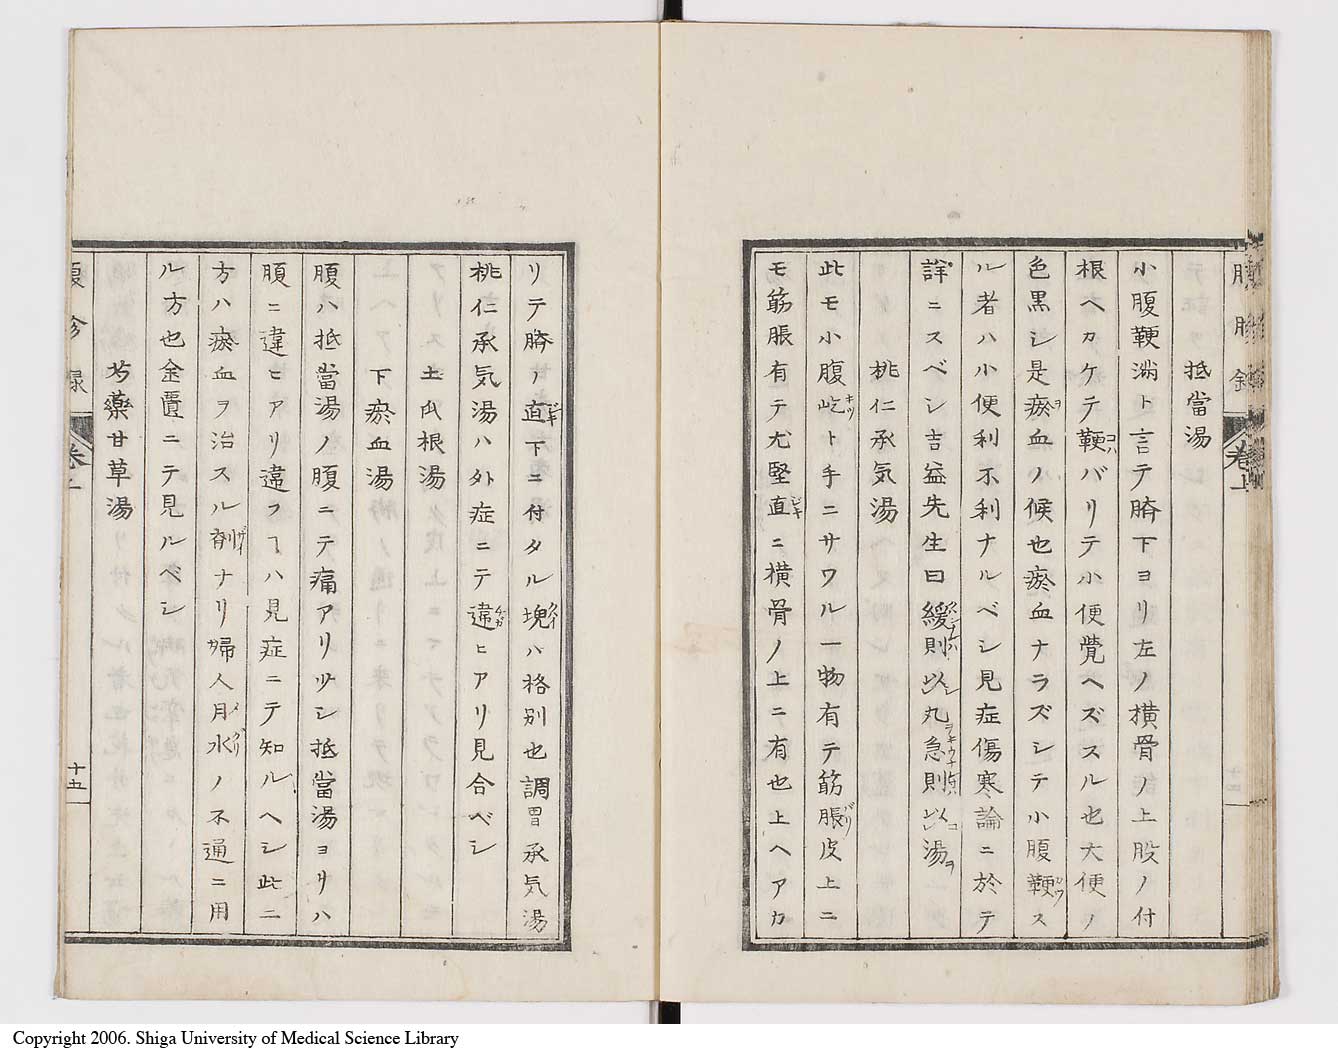 抵當湯
小腹鞕滿ト言テ臍下ヨリ左ノ横骨ノ上股ノ付
根ヘカケテ鞕バリテ小便覺ヘズスル也大便ノ
色黒シ是瘀血ノ候也瘀血ナラズシテ小腹鞕ス
ル者ハ小便利不利ナルベシ見症傷寒論ニ於テ
詳ニスベシ吉益先生曰緩則以丸急則以湯
桃仁承気湯
此モ小腹屹ト手ニサワル一物有テ筋脹皮上ニ
モ筋脹有テ尤堅直ニ横骨ノ上ニ有也上ヘアカ
リテ臍ノ直下ニ付タル塊ハ格別也調胃承気湯
桃仁承気湯ハ外症ニテ違ヒアリ見合ベシ
土瓜根湯
下瘀血湯
腹ハ抵當湯ノ腹ニテ痛アリ少シ抵當湯ヨリハ
腹ニ違ヒアリ違フヿハ見症ニテ知ルヘシ此二
方ハ瘀血ヲ治スル剤ナリ婦人月水ノ不通ニ用
ル方也金匱ニテ見ルベシ
芍藥甘草湯
腹診録
卷上
十五
Copyright 2006. Shiga University of Medical Science Library